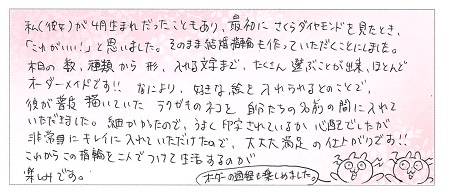 私(彼女)が4月生まれだったこともあり、最初にさくらダイヤモンドを見たとき、
「これがいい!」と思いました。そのまま結婚指輪も作っていただくことにしました。
木目の数、種類から形、入れる文字まで、たくさん選ぶことが出来、ほとんど
オーダーメイドです!! なにより、好きな絵を入れられるとのことで、
彼が普段描いていたラクガキのネコを自分たちの名前の間に入れて
いただきました。細かかったので、うまく印字されているか心配でしたが
非常にキレイに入れていただけたので、大大大満足の仕上がりです!!
これからこの指輪を二人でつけて生活するのが
楽しみです。
オーダーの過程も楽しめました。